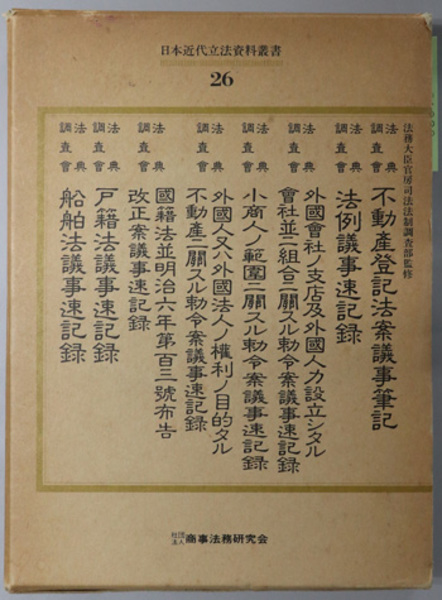 日本近代立法資料叢書
26
法務大臣官房司法法制調査部監修
法典調査會 不動產登記法案議事筆記
法典調査會 法例議事速記錄
法典調査會 外國會社ノ支店及外國人カ設立シタル
會社並ニ組合ニ關スル勅令案議事速記錄
法典調査會 小商人ノ範圍ニ關スル勅令案議事速記錄
法典調査會 外國人又ハ外國法人ノ權利ノ目的タル
不動產ニ關スル勅令案議事速記錄
法典調査會 國籍法並明治六年第百三號布告
改正案議事速記錄
法典調査會 戶籍法議事速記錄
法典調査會 船舶法議事速記錄
社団法人 商事法務研究会